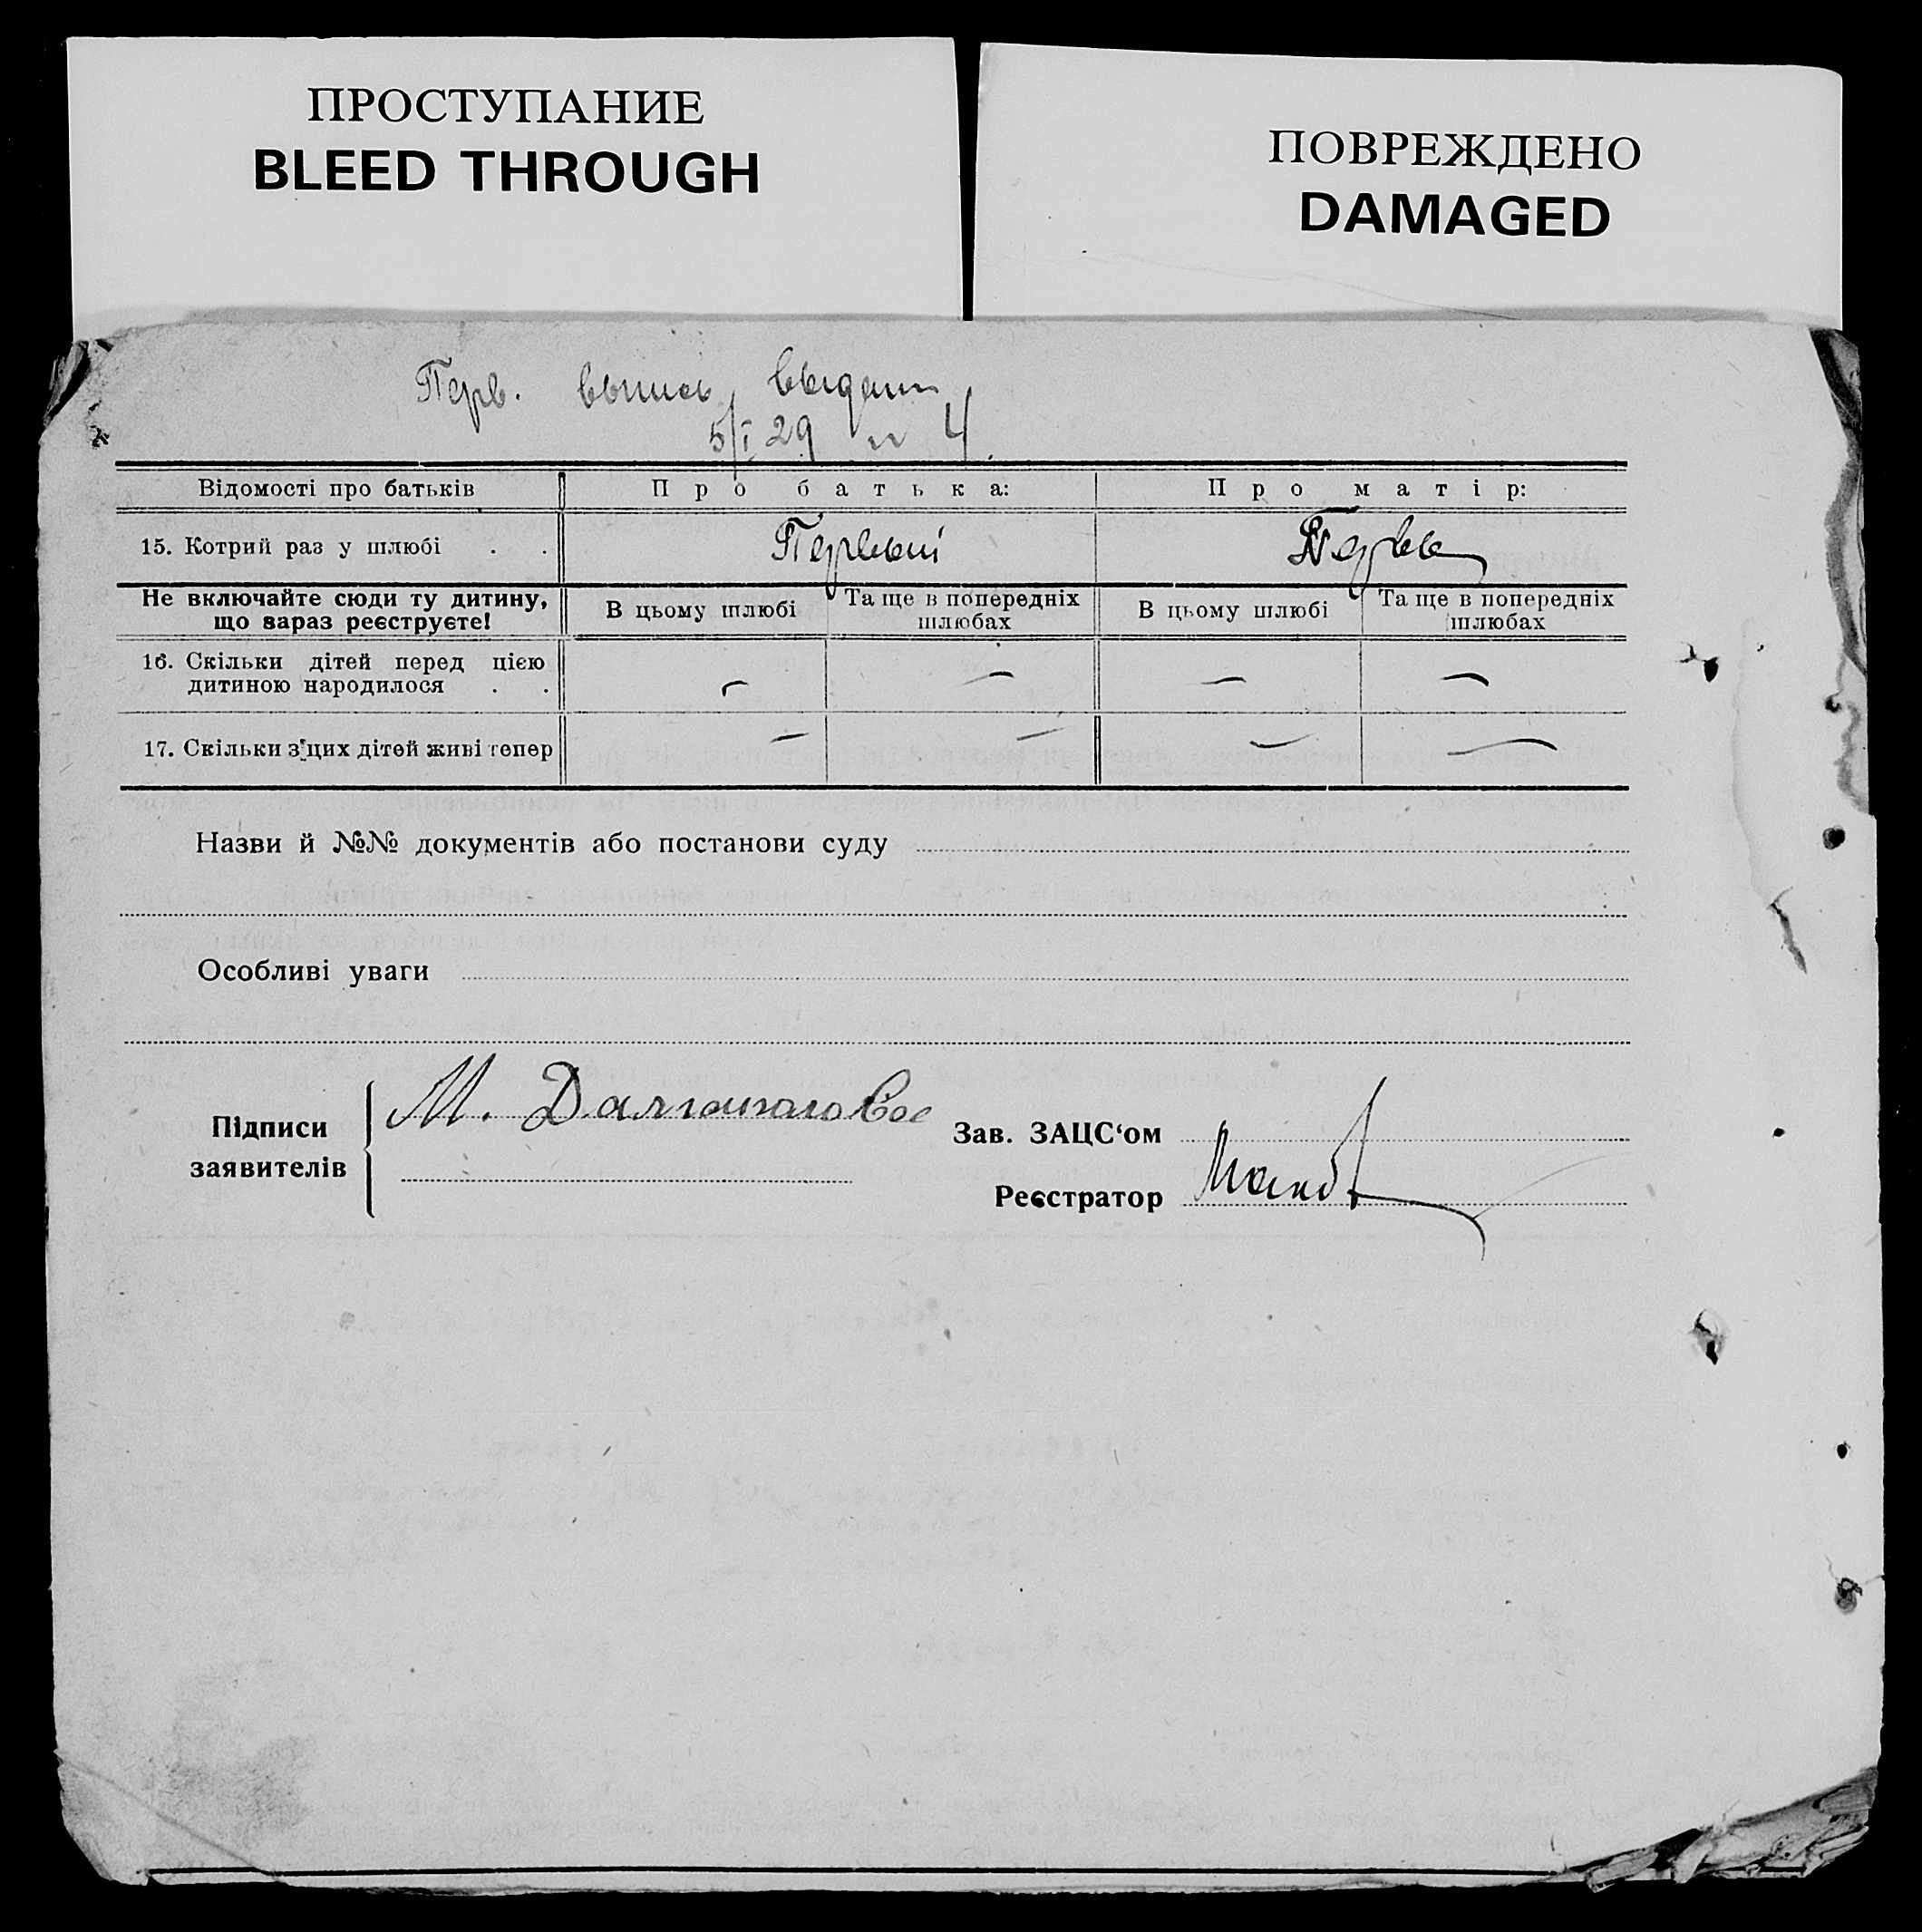 ПРОСТУПАНИЕ
BLEED THROUGH
ПОВРЕЖДЕНО
DAMAGED
Перв. выпись выдана
5/I 29 № 4.
Відомості про батьків Про батька: Про матір:
15. Котрий раз у шлюбі . . Первый Первы
Не включайте сюди ту дитину, що зараз реєструєте! В цьому шлюбі Та ще в попередніх шлюбах В цьому шлюбі Та ще в попередніх шлюбах
16. Скільки дітей перед цією
дитиною народилося . . — — — —
17. Скільки з'цих дітей живі тепер — — — —
Назви й №№ документів або постанови суду
Особливі уваги
Підписи
заявителів
М.
Зав. ЗАЦС‘ом
Реєстратор